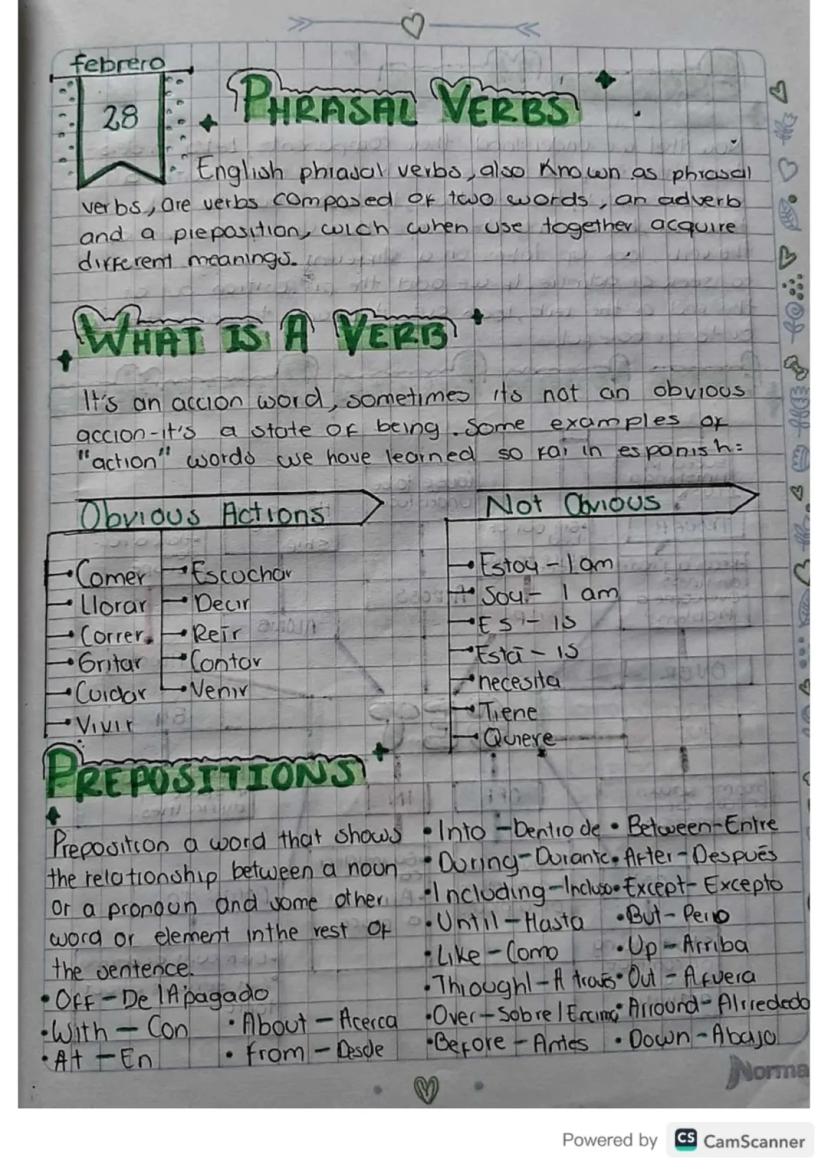 febrero
28
PHRASAL VERBS
English phrasal verbs, also Known as phrasal
verbs, are verbs composed of two words, an adverb
and a preposition, wich when use together acquire
different meanings.
WHAT IS A VERB
It's an accion word, sometimes its not an obvious
accion-it's a state of being. Some examples of
"action" words we have learned so far in espanish:
Obvious Actions
Comer
Escuchar
Llorar
Decir
Correr.
Reír
Gritar
Contar
Cuidar
Venir
Vivir
Not Obvious
Estoy - I am
Soy - I am
Es - is
Está - is
necesita
Tiene
Quiere
PREPOSITIONS
Preposition a word that shows
the relationship between a noon
or a pronoun and some other
word or element inthe rest of
the sentence.
• Off - De lApagado
• With - Con • About - Acerca
• At - En • from - Desde
• Into - Dentro de • Between - Entre
• During - Durante • After - Después
• Including - Incluso • Except - Excepto
• Until - Hasta • But - Pero
• Like - Como • Up - Arriba
• Throughl - A través • Out - Afuera
• Over - Sobre / Encima • Arround - Alrrededo
• Before - Antes • Down - Abajo
Norma
Powered by CS CamScanner